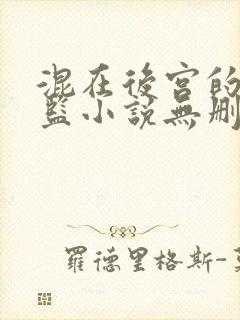 混在後宮的
藍小說無刪
羅德里格斯-